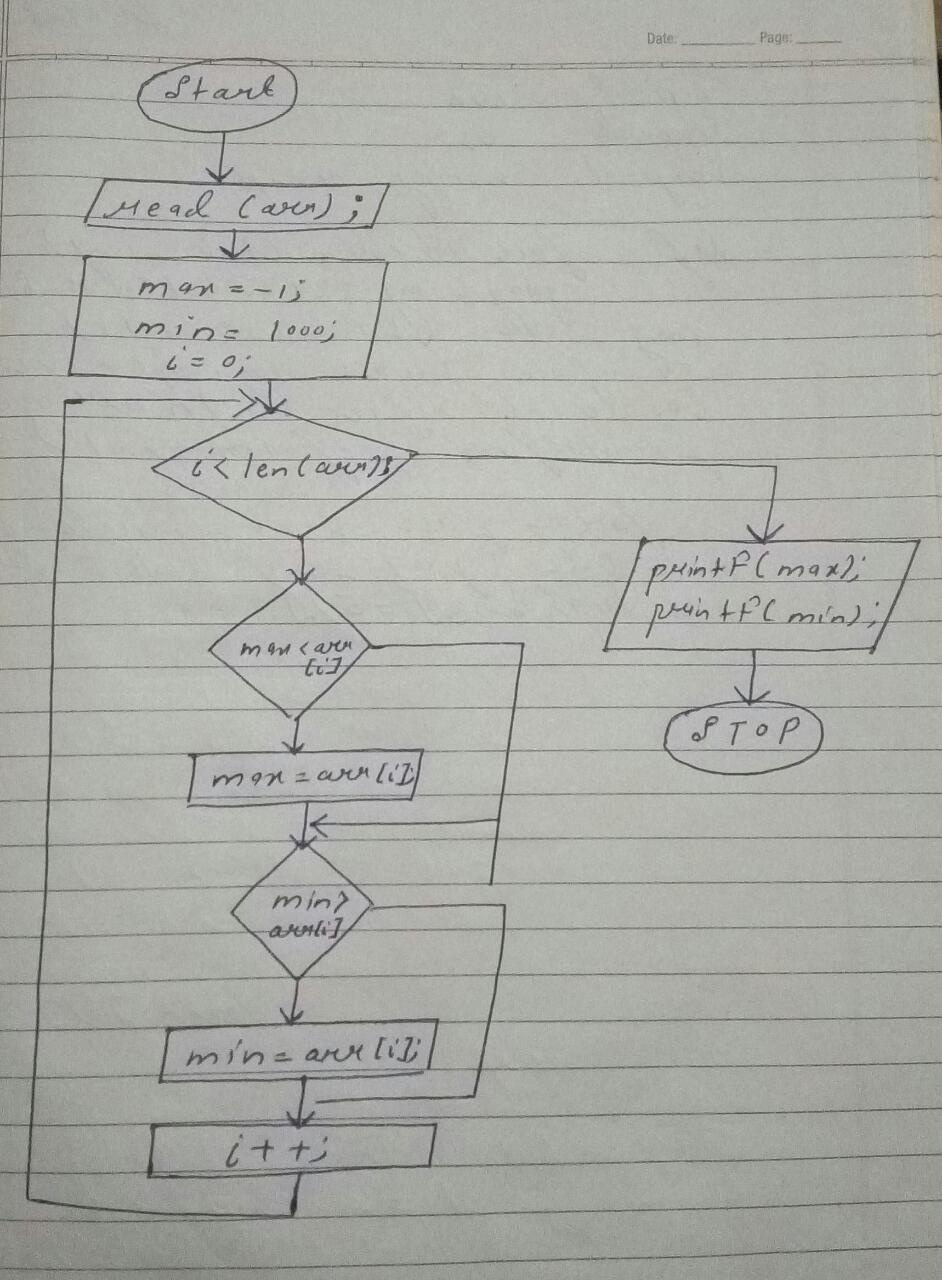 Date: Page:
Start
read (arr);
max = -1;
min = 1000;
i = 0;
i < len(arr);
max < arr
[i]
max = arr[i];
min >
arr[i]
min = arr[i];
i++;
printf(max);
printf(min);
STOP